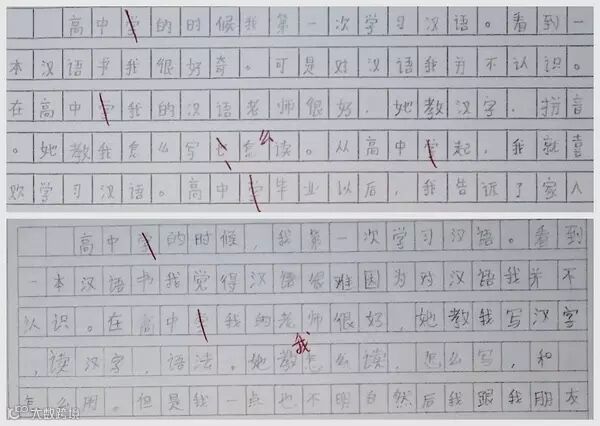 高中学的时候我第一次学习汉语。看到一
本汉语书我很好奇。可是对汉语我并不认识。
在高中学我的汉语老师很好,她教汉字,拼音
。她教我怎么写、怎么读。从高中学起,我就喜
欢学习汉语。高中学毕业以后,我告诉了家人
高中学的时候,我第一次学习汉语。看到
一本汉语书我觉得汉语很难因为对汉语我并不
认识。在高中学我的老师很好,她教我写汉字
,读汉字,语法。她教我怎么读,怎么写,和
怎么用。但是我一点也不明白然后我跟我朋友
大数跨境